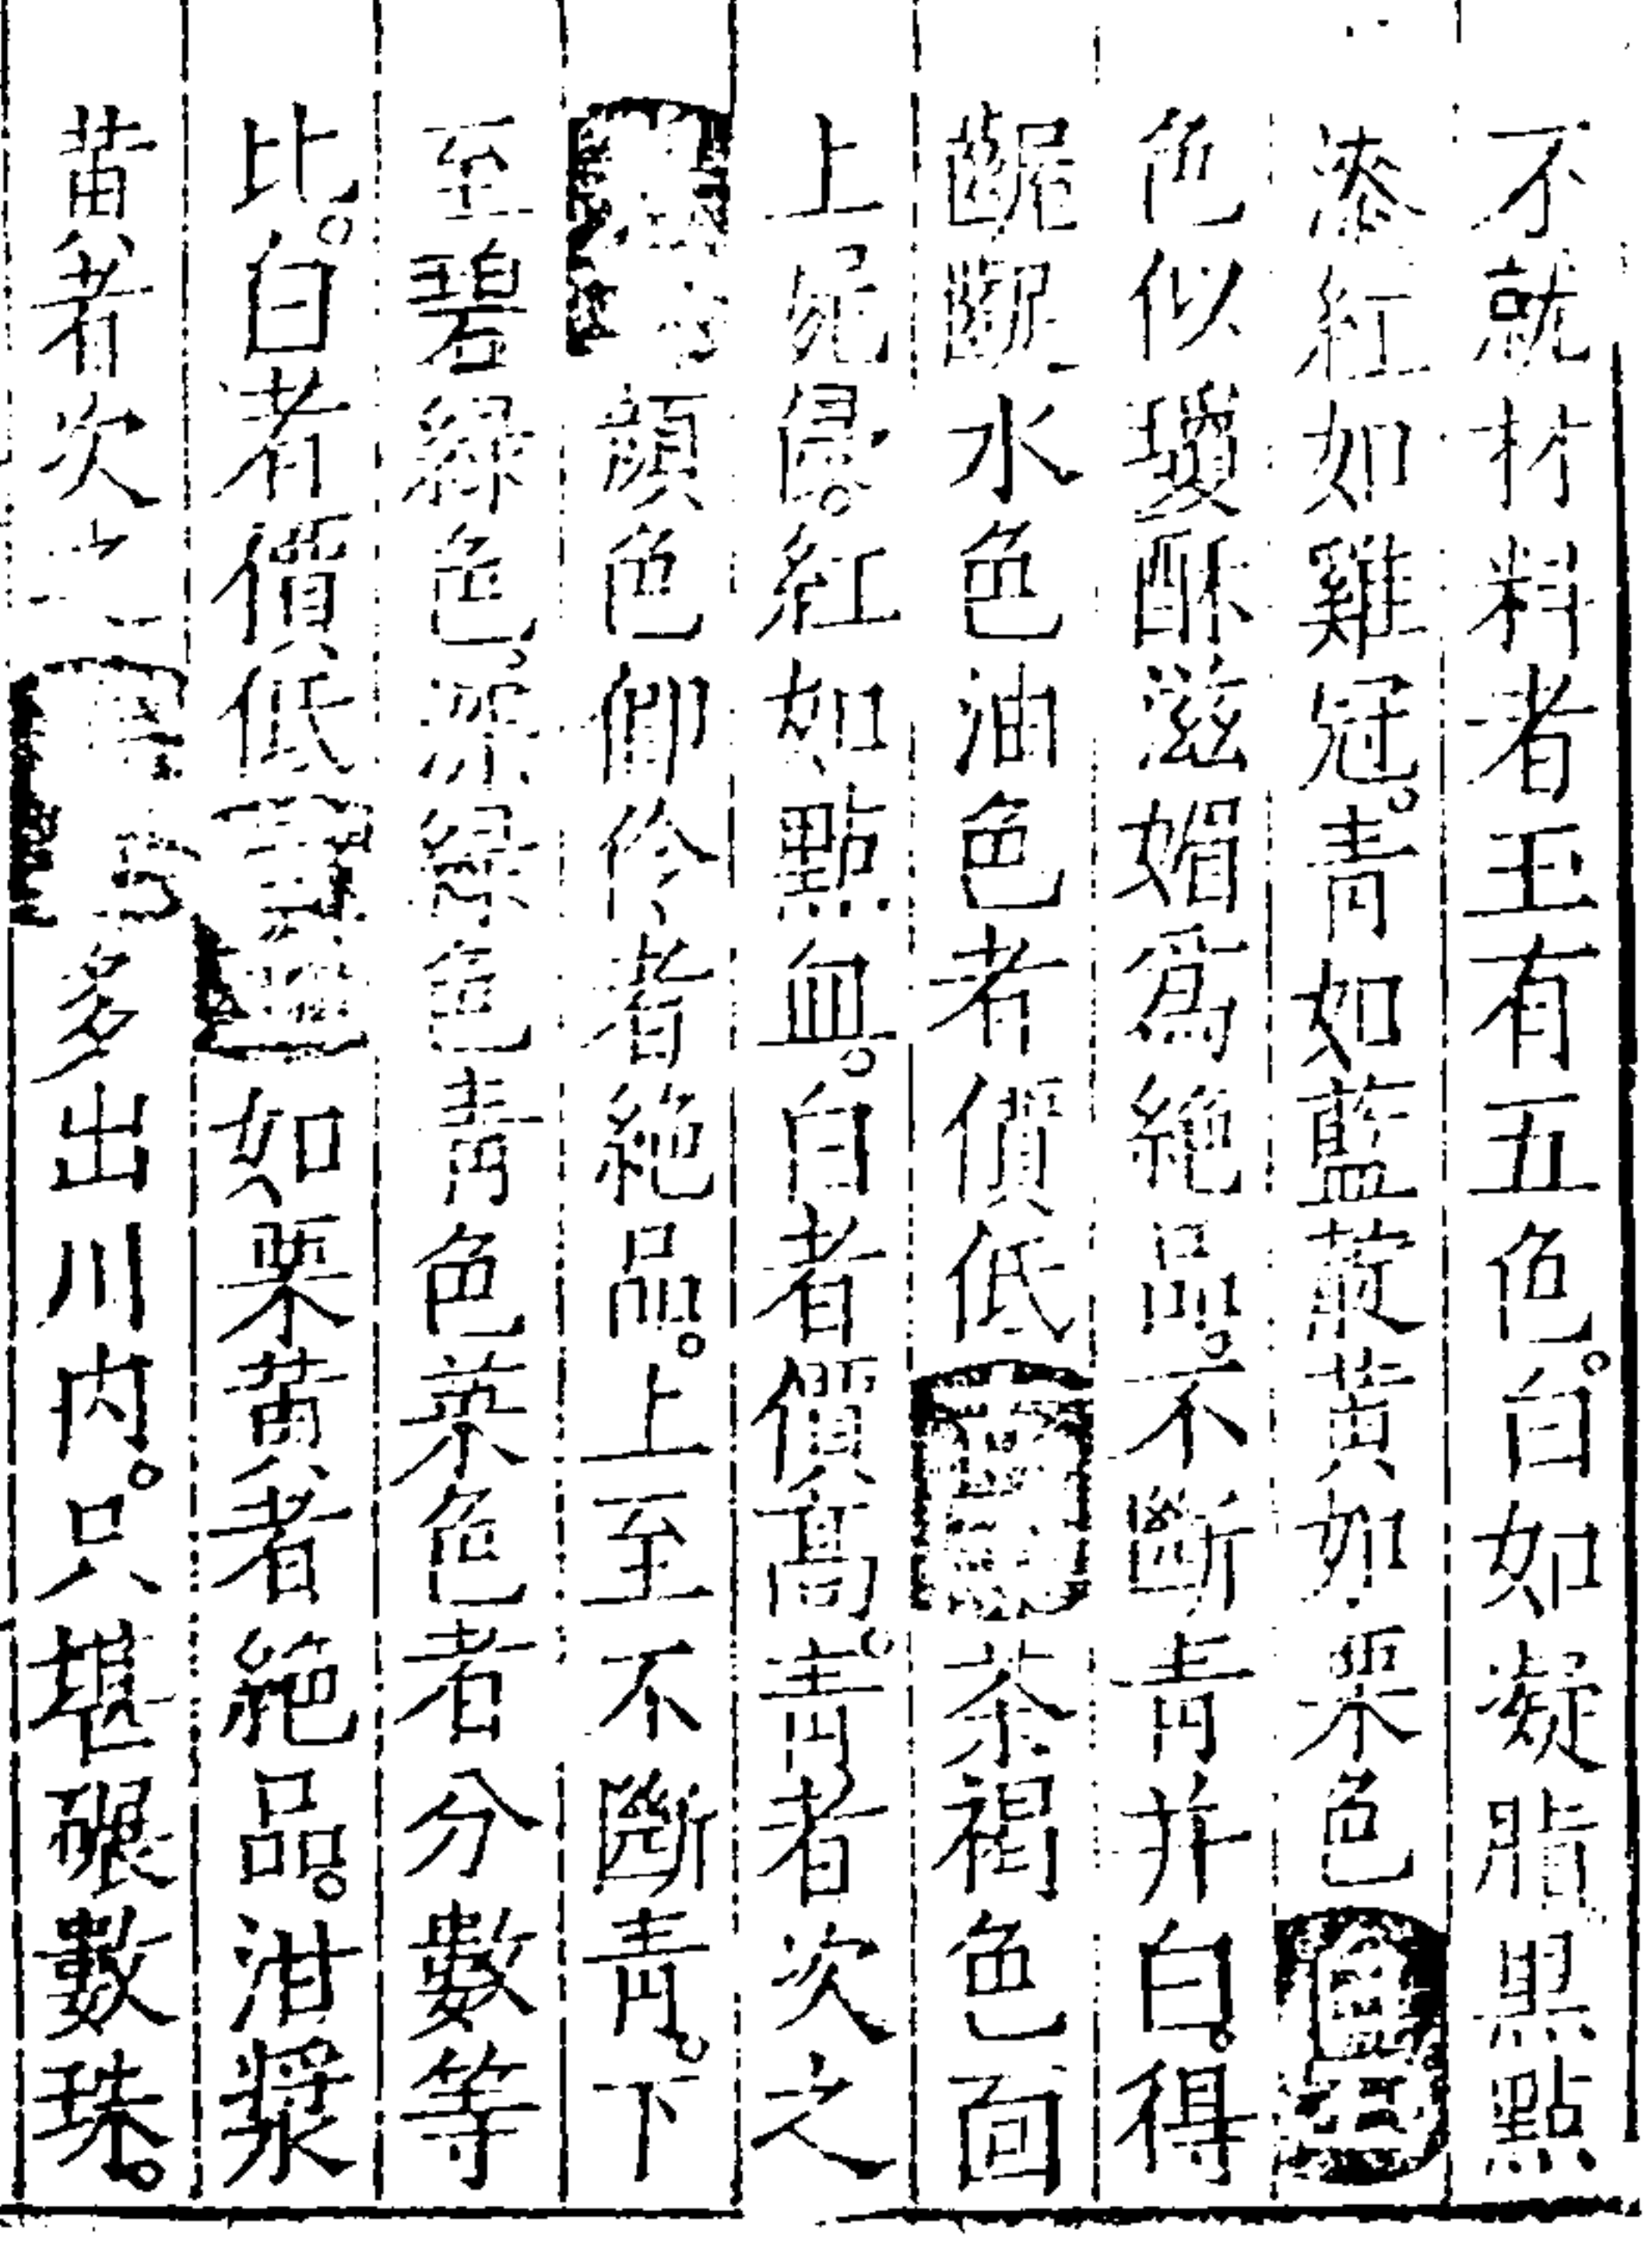 不就材料者玉有五色。白如凝脂黑點
漆紅如雞冠。青如藍靛黃如栗色
色似瓊酥滋媚爲絶品。不斷青并白。得
齷齪水色油色者價低 茶褐色面
上 紅如點血。白者價高。青者次之
顔色 伶者絶品。上至不斷青。下
至碧緑色。深緑色青色菜色者分數等
比。白者價低 如栗黃者絶品。泔漿
黃者次之 多出川内。只堪碾數珠。